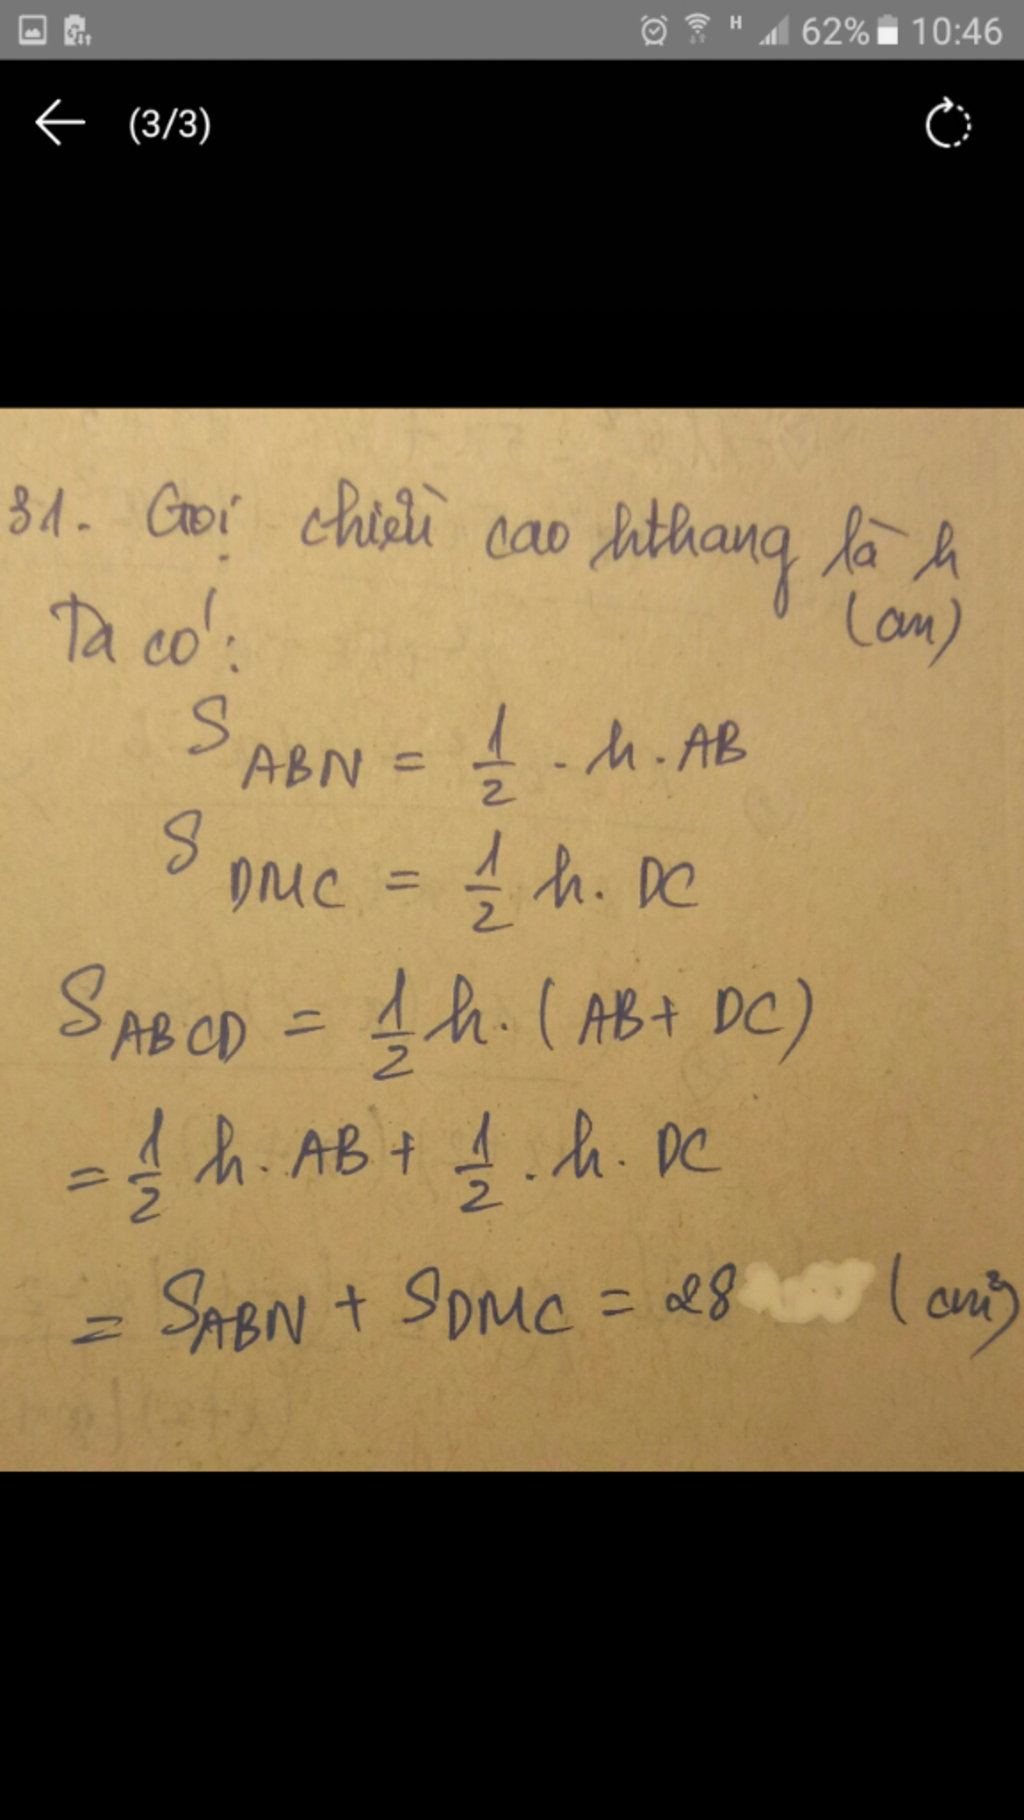 H 62% 10:46
(3/3)
31. Gọi chiều cao hthang là h
(cm)
Ta có:
S ABN = 1/2 . h . AB
S DMC = 1/2 h . DC
S ABCD = 1/2 h . (AB + DC)
= 1/2 h . AB + 1/2 . h . DC
= S ABN + S DMC = 28 (cm²)